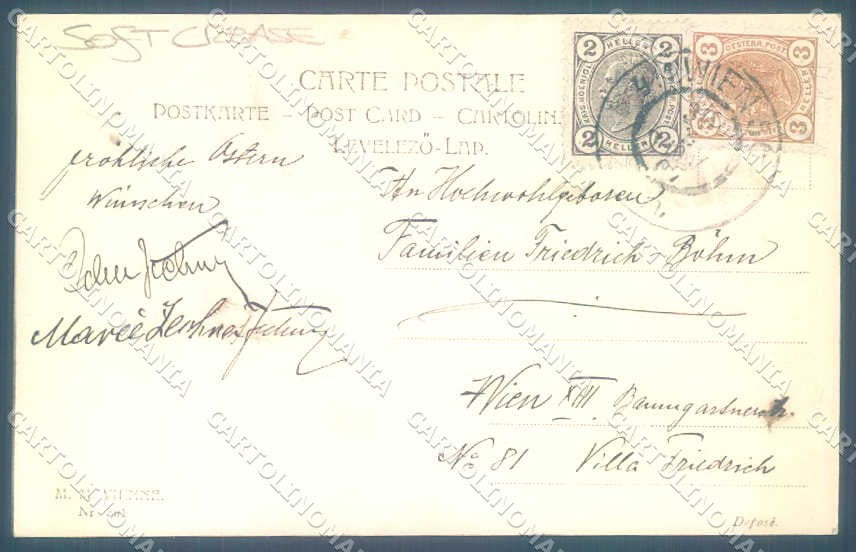 SOFT CREASE
CARTE POSTALE
POSTKARTE – POST CARD – CARTOLIN
LEVELEZŐ-LAP.
2 HELLER 2
2 HELLER 2
3 OESTERR. POST 3
3 3
WIEN
fröhliche Ostern
Wünschen
Marie
An Hochwohlgeboren
Familien Friedrich Böhm
Wien XIII Baumgartnerstr.
No 81 Villa Friedrich
M. M. VIENNE.
Nr
Déposé.
CARTOLINOMANIA